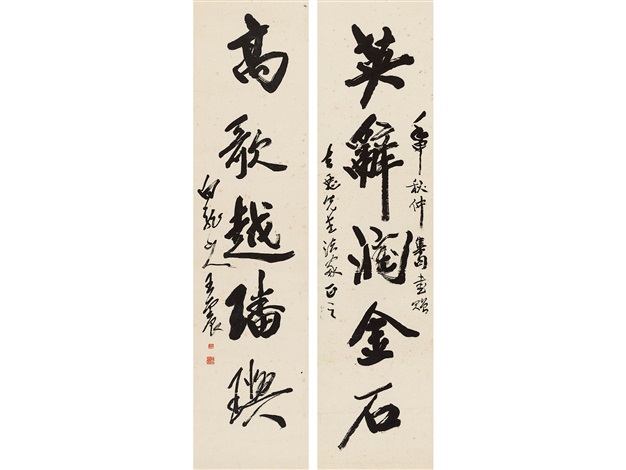 申秋仲 書贈
英辭潤金石
先生法家正之
高歌越璠璵
白龍山人王震